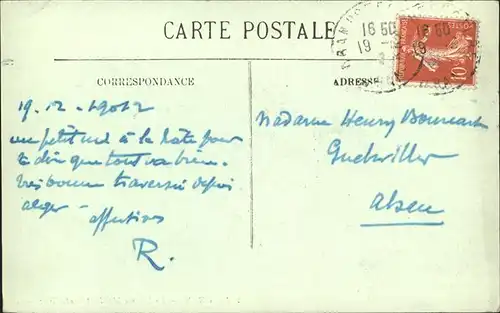 CARTE POSTALE
CORRESPONDANCE
ADRESSE
16 50
19
10
19-12-1912
un petit mot à la hâte pour
te dire que tout va bien.
très bonne traversée depuis
alger -
affections
R.
Madame Henry
Guebwiller
Alsace